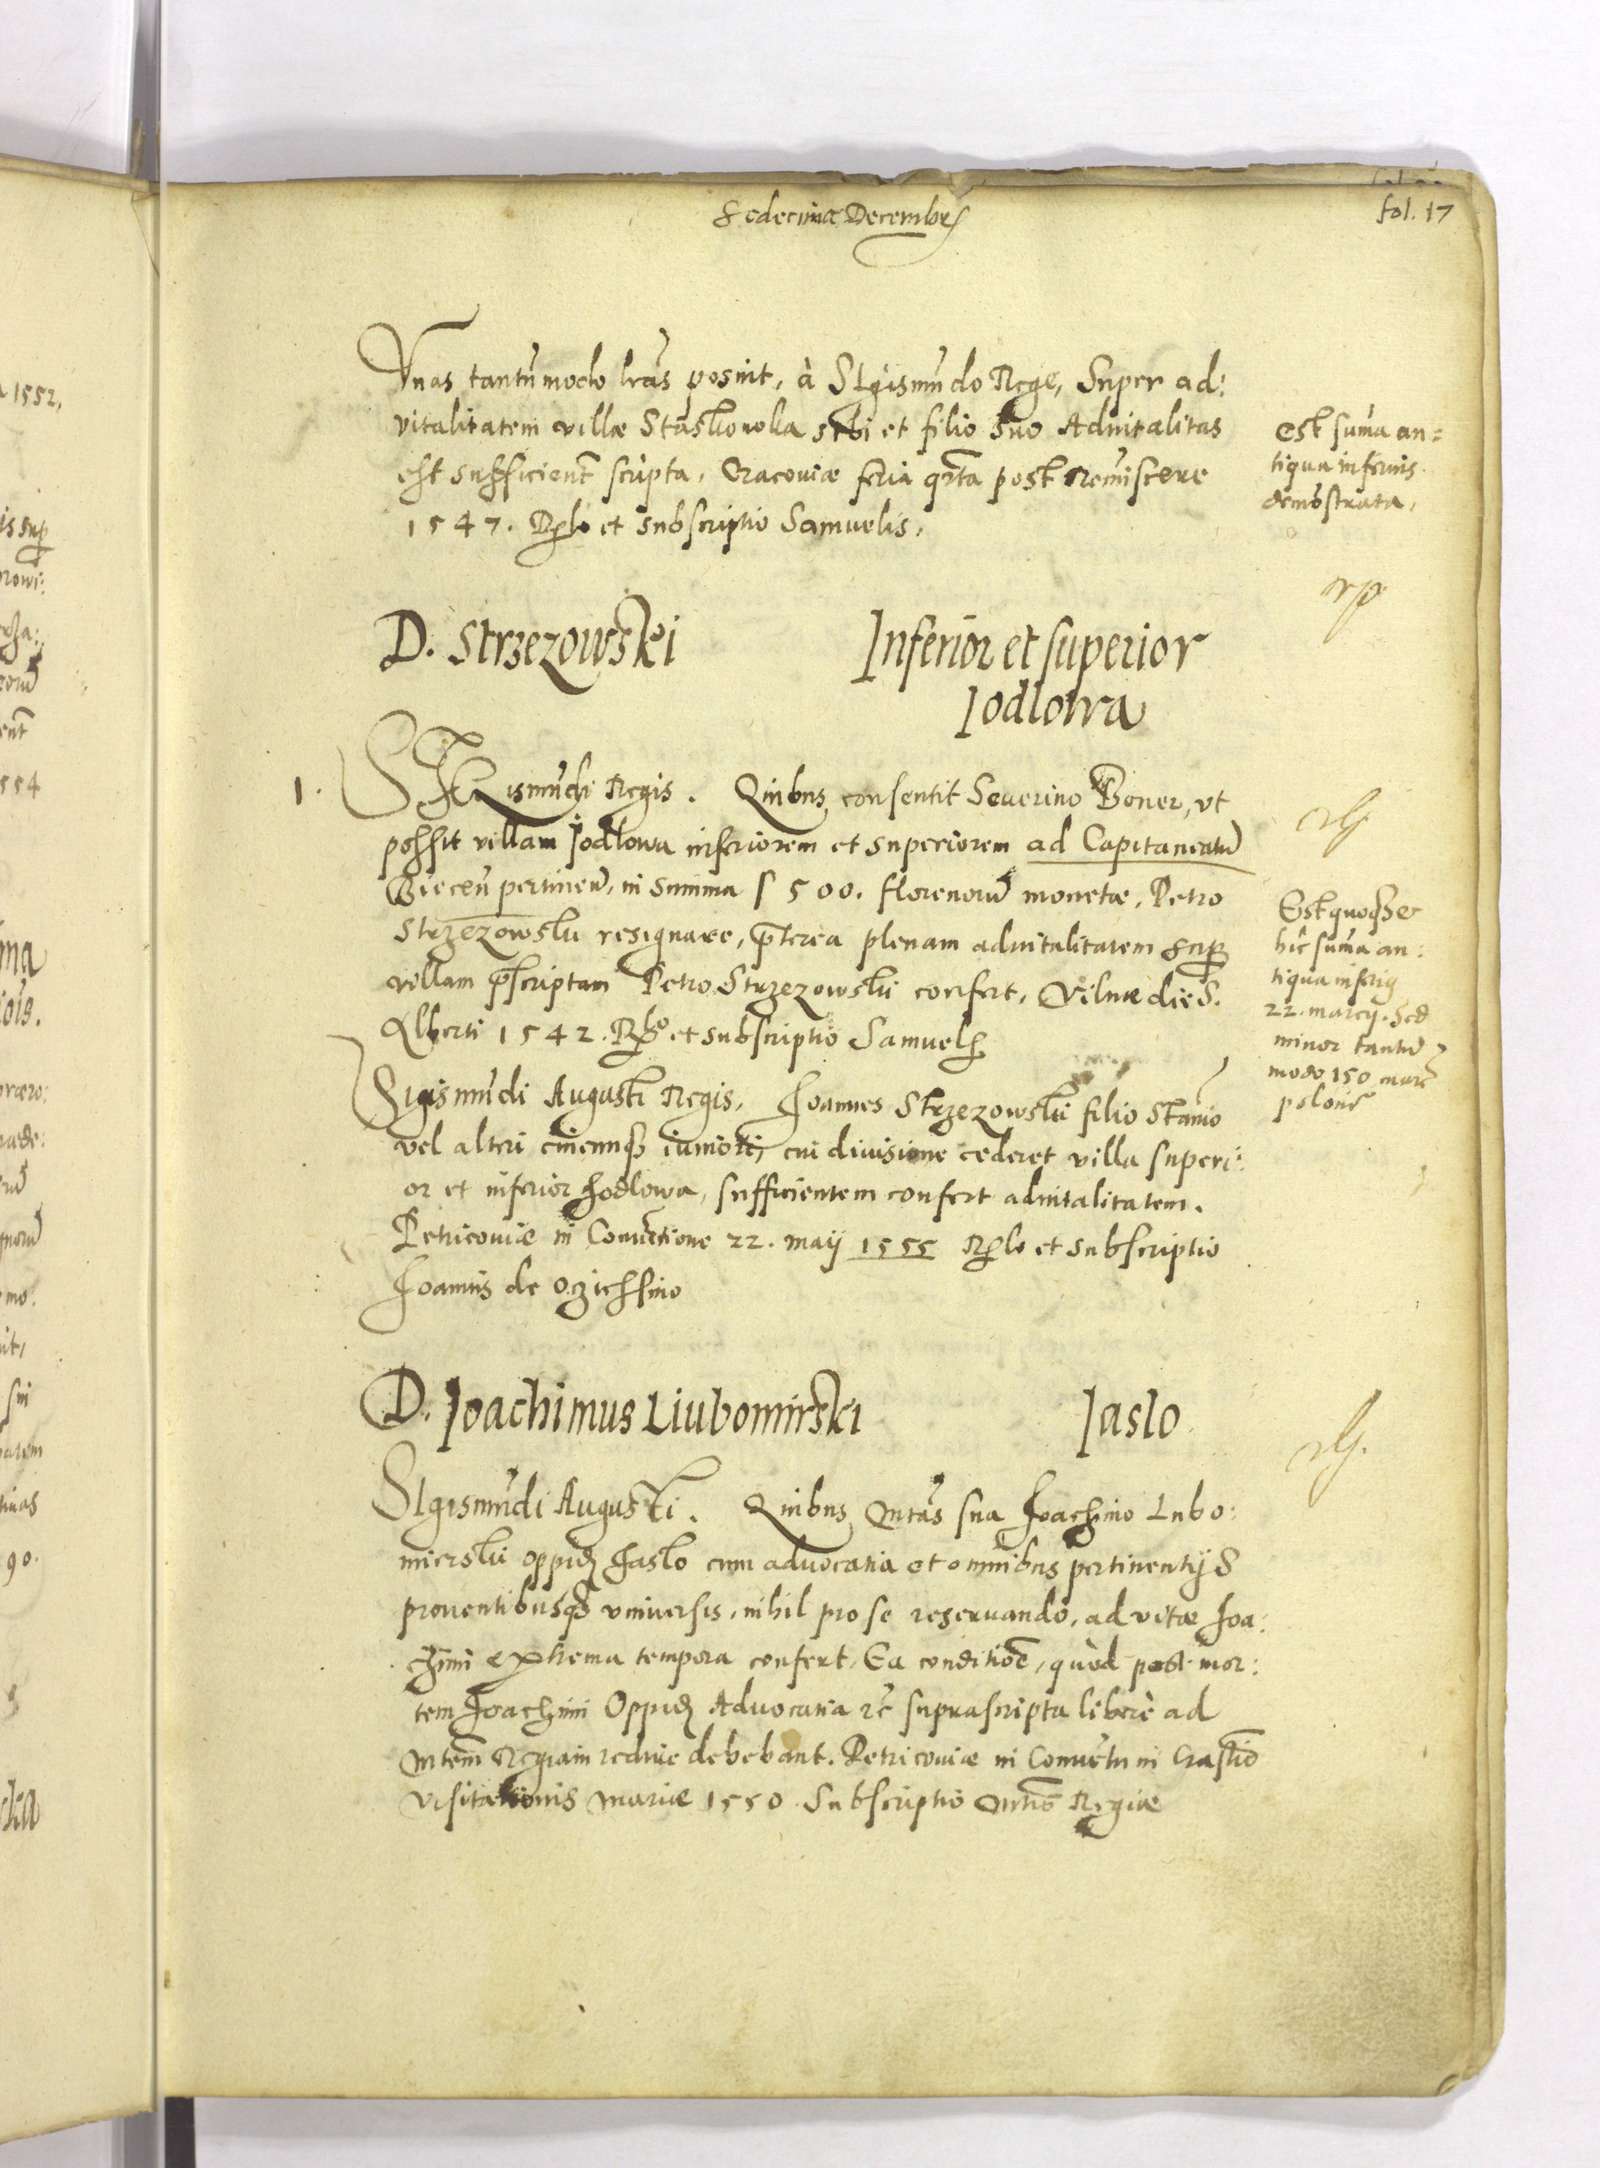 Sedecima Decembris
fol. 17
Vnas tantũmodo lr̃as posuit, à Sigismũdo Rege, Super ad:
vitalitatem villæ Staskowka sibi et filio suo Aduitalitas
est sufficient̃ scripta, Cracoviæ feria qr̃ta post Remĩscere
1547. Rl̃o et subscriptio Samuelis,
est sum̃a an=
tiqua inferius
demõstrata,
D. Strzezowski Inferior et superior
Iodlowa
1. Sigismũdi Regis. Quibus consentit Seuerino Boner, vt
possit villam Jodlowa inferiorem et superiorem ad Capitaneatũ
Biecen̄ pertinen̄, in summa f 500. florenorũ monetæ, Petro
Strzezowski resignare, p̃terea plenam aduitalitatem sup
villam p̃scriptam Petro Strzezowski confert, Vilnæ die S.
Alberti 1542. Rl̃o et subscriptio Samuelis
Est quoqȝ e
hic sum̃a an:
tiqua inferiꝰ
22. marcij. sed
minor tantũ
modo 150 marc̃
polonic̃
Sigismũdi Augusti Regis, Joannes Strzezowski filio Stanĩo
vel alteri cuicumqȝ iuniori, cui diuisione cederet villa superi:
or et inferior Jodlowa, sufficientem confert aduitalitatem.
Petricoviæ in Conuẽtione 22. maij 1555 Rl̃o et subscriptio
Joannis de Ocziessino
D. Joachimus Liubomirski Jaslo
Sigismũdi Augusti. Quibus Mtãs sua Joachimo Lubo:
mierski oppidũ Jaslo cum aduocatia et omnibus pertinentijs
prouentibusqȝ vniuersis, nihil pro se reseruando, ad vitæ Joa:
chimi extrema tempora confert, Ea conditioẽ, quòd post mor:
tem Joachimi Oppidũ Aduocatia &c̃ suprascripta liberè ad
Mtem̃ Regiam redire debebant. Petricouiæ in Conuẽtu in Crastĩo
visitationis Mariæ 1550. Subscriptio Mtis̃ Regiæ